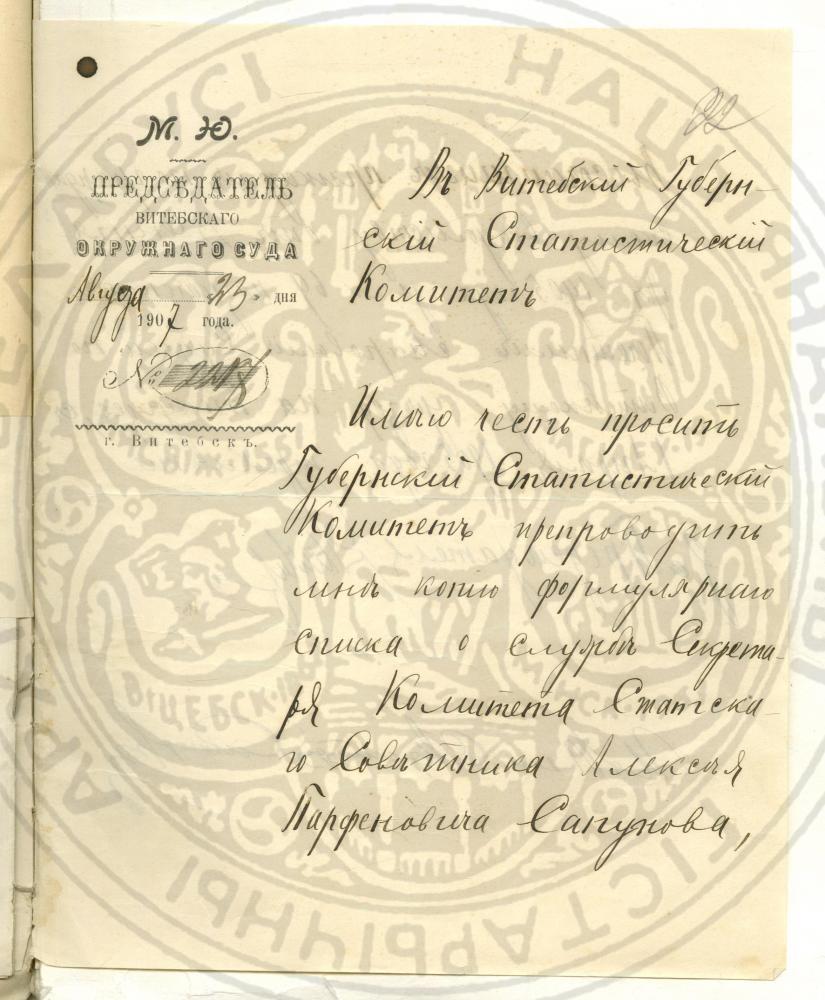 М. Ю.
ПРЕДСѢДАТЕЛЬ
ВИТЕБСКАГО
ОКРУЖНАГО СУДА
Августа 23 дня
1907 года.
№
г. Витебскъ.
22
Въ Витебскій Губерн-
скій Статистическій
Комитетъ
Имѣю честь просить
Губернскій Статистическій
Комитетъ препроводить
мнѣ копію формулярнаго
списка о службѣ Секрета-
ря Комитета Статска-
го Совѣтника Алексѣя
Парфеновича Сапунова,